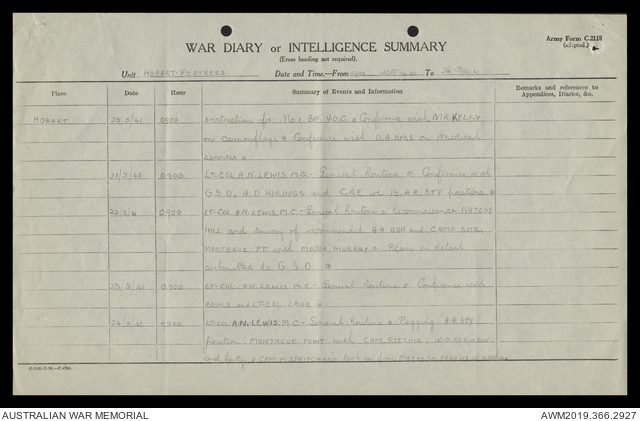 Army Form C.2118
(adapted.)
WAR DIARY or INTELLIGENCE SUMMARY
(Erase heading not required).
Unit HOBART FORTRESS Date and Time—From 0900 20 May 41 To 24 May 41
Place Date Hour Summary of Events and Information Remarks and references to Appendices, Diaries, &c.
HOBART 20/5/41 0900 Instruction for No 1 BN V.D.C. Conference with MR KELLY
on Camouflage. Conference with D.A.D.M.S on Medical
services.
21/5/41 0900 LT-COL A.N. LEWIS. M.C. - General Routine. Conference with
G.S.O, A.D HIRINGS and C.R.E re 13 A.A. BTY position.
22/5/41 0900 LT-COL A.N. LEWIS M.C. - General Routine. Reconnaissance
HILL and survey of recommended A.A GUN and CAMP SITE,
MONTAGUE PT with MAJOR MURRAY. Plan in detail
submitted to G.S.O.
23/5/41 0900 LT-COL. A.N. LEWIS M.C. - General Routine. Conference with
and LT-COL LANE.
24/5/41 0900 LT-COL A.N. LEWIS. M.C - General Routine. Pegging A.A. BTY
position, MONTAGUE POINT with CAPT. RITCHIE, ROBINSON
and party. CAPT. took over from
AUSTRALIAN WAR MEMORIAL
AWM2019.366.2927